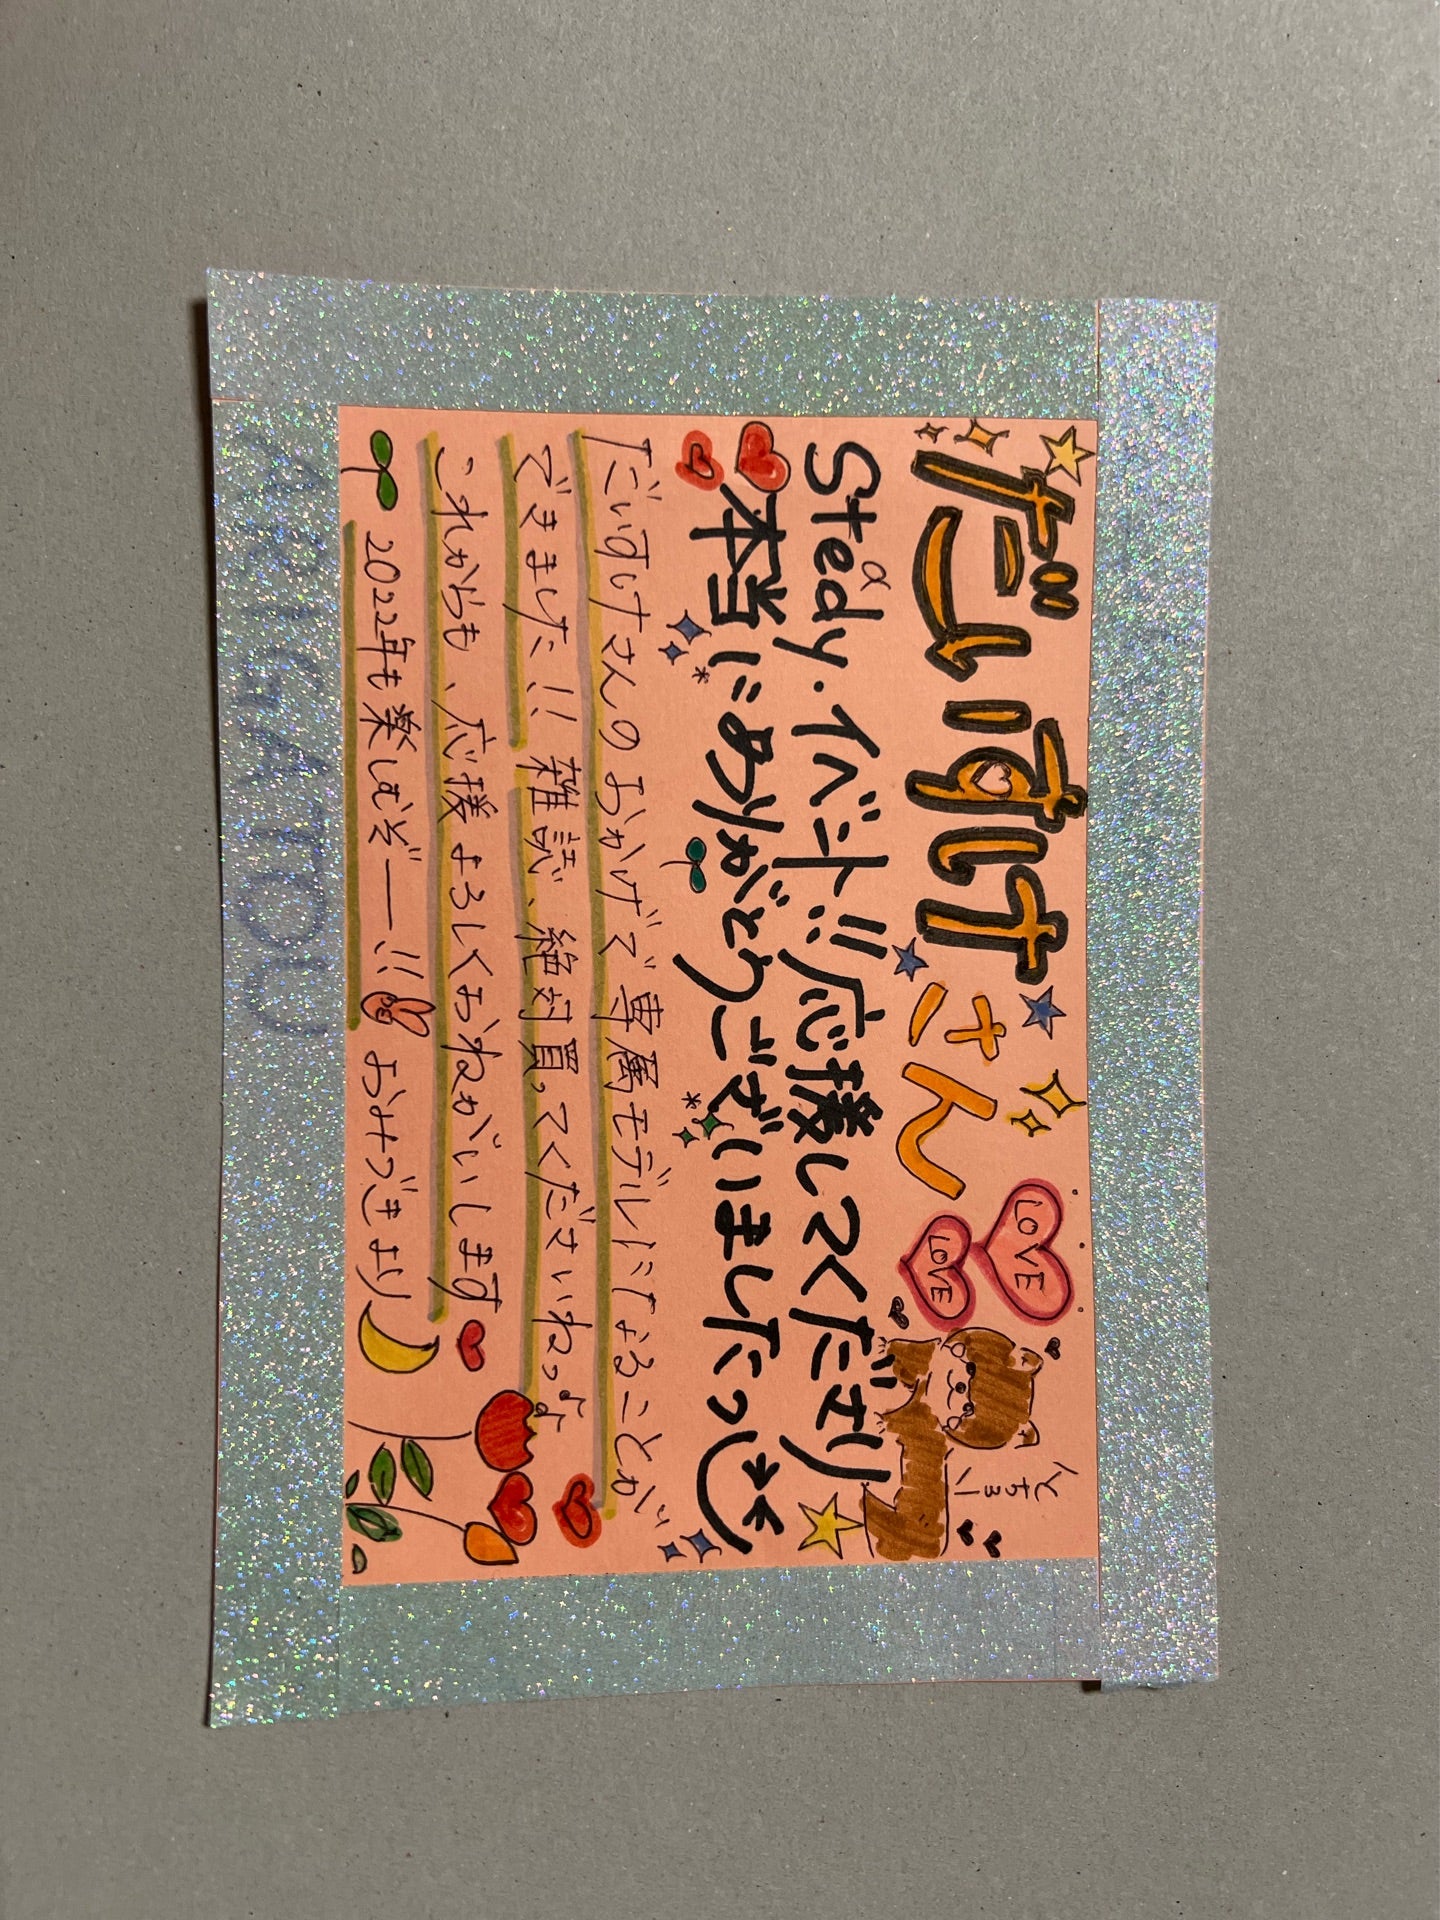 だいすけさん
LOVE
LOVE
んちょ!
Steady.イベント!!応援してくださり
a
本当にありがとうございましたっ
だいすけさんのおかげで専属モデルになることが
できました!! 雑誌、絶対買ってくださいねっ♪
これからも、応援よろしくおねがいします
2022年も楽しむぞー!! おみづきより
ARIGATOU